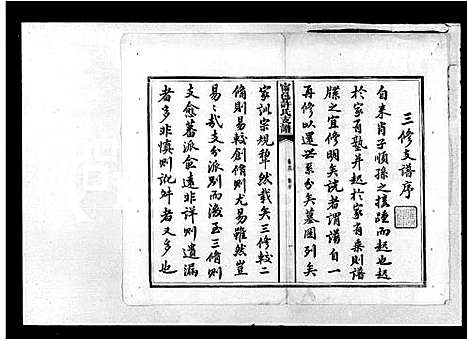 三修支譜序
自來肖子順孫之接踵而起也起
於家有塾並起於家有乘則譜
牒之宜修明矣說者謂譜自一
再修以還世系分矣墓圖列矣
甯邑許氏支譜
家訓宗規犖然載矣三修較二
脩則易較創脩則尤易雖然豈
易易哉支分派別而溯至三脩則
支愈蕃派愈遠非詳則遺漏
者多非慎則訛舛者又多也